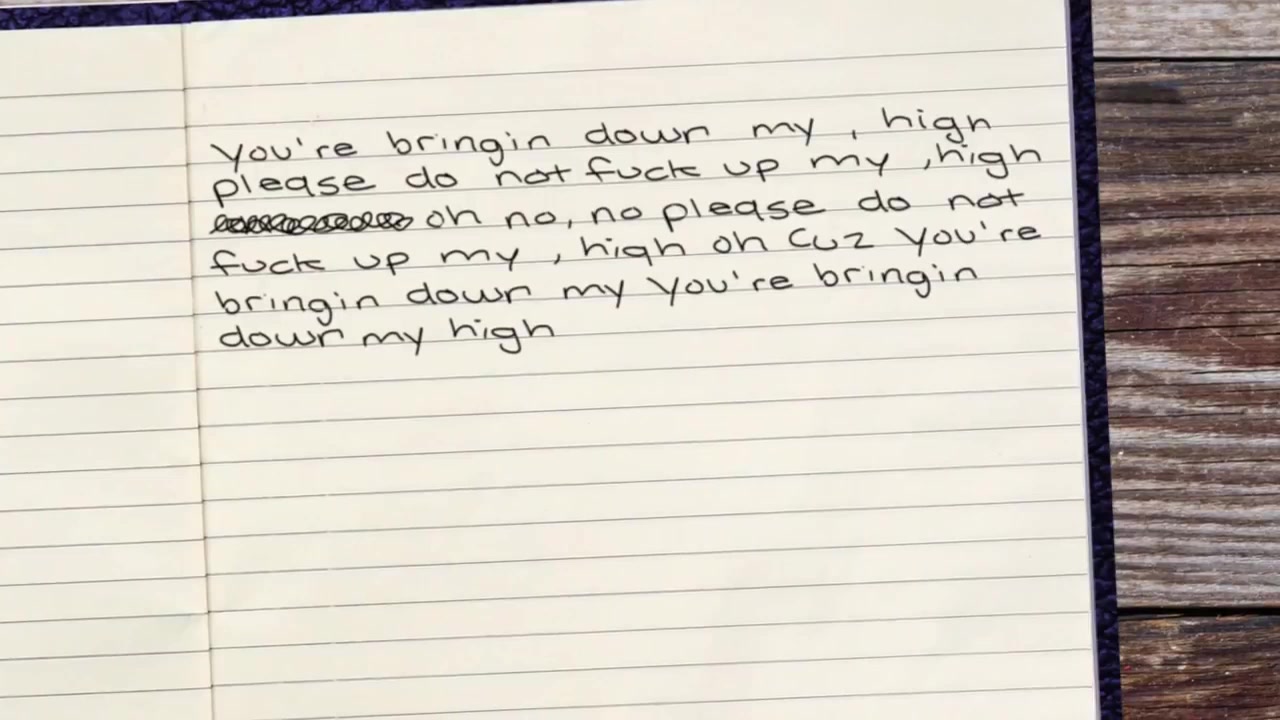 You're bringin down my , high
please do not fuck up my , high
oh no, no please do not
fuck up my , high oh cuz you're
bringin down my you're bringin
down my high